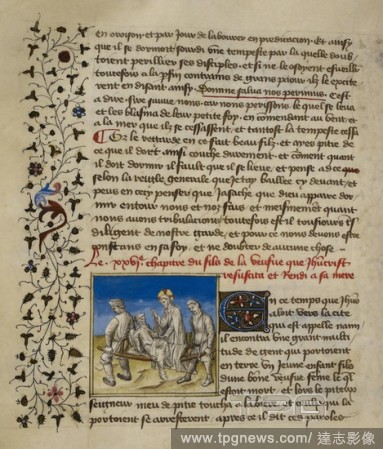 en oroison et par jour de labourer en predicacion. Et ainsy
que il se dormoit sourdi une tempeste par la quelle doub
toient perillier ses disciples. et si ne le osoient esveillier
toutefois a la fin contrains de grans paour ilz le excite
rent en disant ainsy. Domine salva nos perimus. C'est
a dire sire sauve nous. car nous perissons. le quel se leva
et les blasma de leur petite foy. en comandant au vent et
a la mer que ilz se cessassent. et tantost la tempeste cessa
Or le regarde en ce fait beau filz. et ayes pitie de
ce que il dort. ainsi couche durement. et coment quant
il doit dormir il fault que il se lieve. et pense ad ce que
selon la reule generale que je tay baillee cy devant. et
peus en cecy penser que ja sache que dieu appaire dor
mir entour nous et noz fais. et mesmement quant
nous avons tribulacions toutefois est il tousjours tres
diligent de nostre garde. et pour ce nous devons estre
constans en sa foy. et ne doubter de aucune chose.
Le .xxvi. chapitre du filz de la vesfue que jhesucrist
resuscita et rendi a sa mere
En ce temps que jhesus
aloit vers la cite
qui est appelle naim
il encontra une grant multi
tude de gent qui portoient
en terre un jeune enfant filz
dune bone vesfue feme le quel
estoit mort. et lors le piteux
seigneur meu de pitie toucha a la biere. et ceulx qui la
portoient se arresterent. apres ce il dit ces paroles
www.tpgnews.com / 達志影像